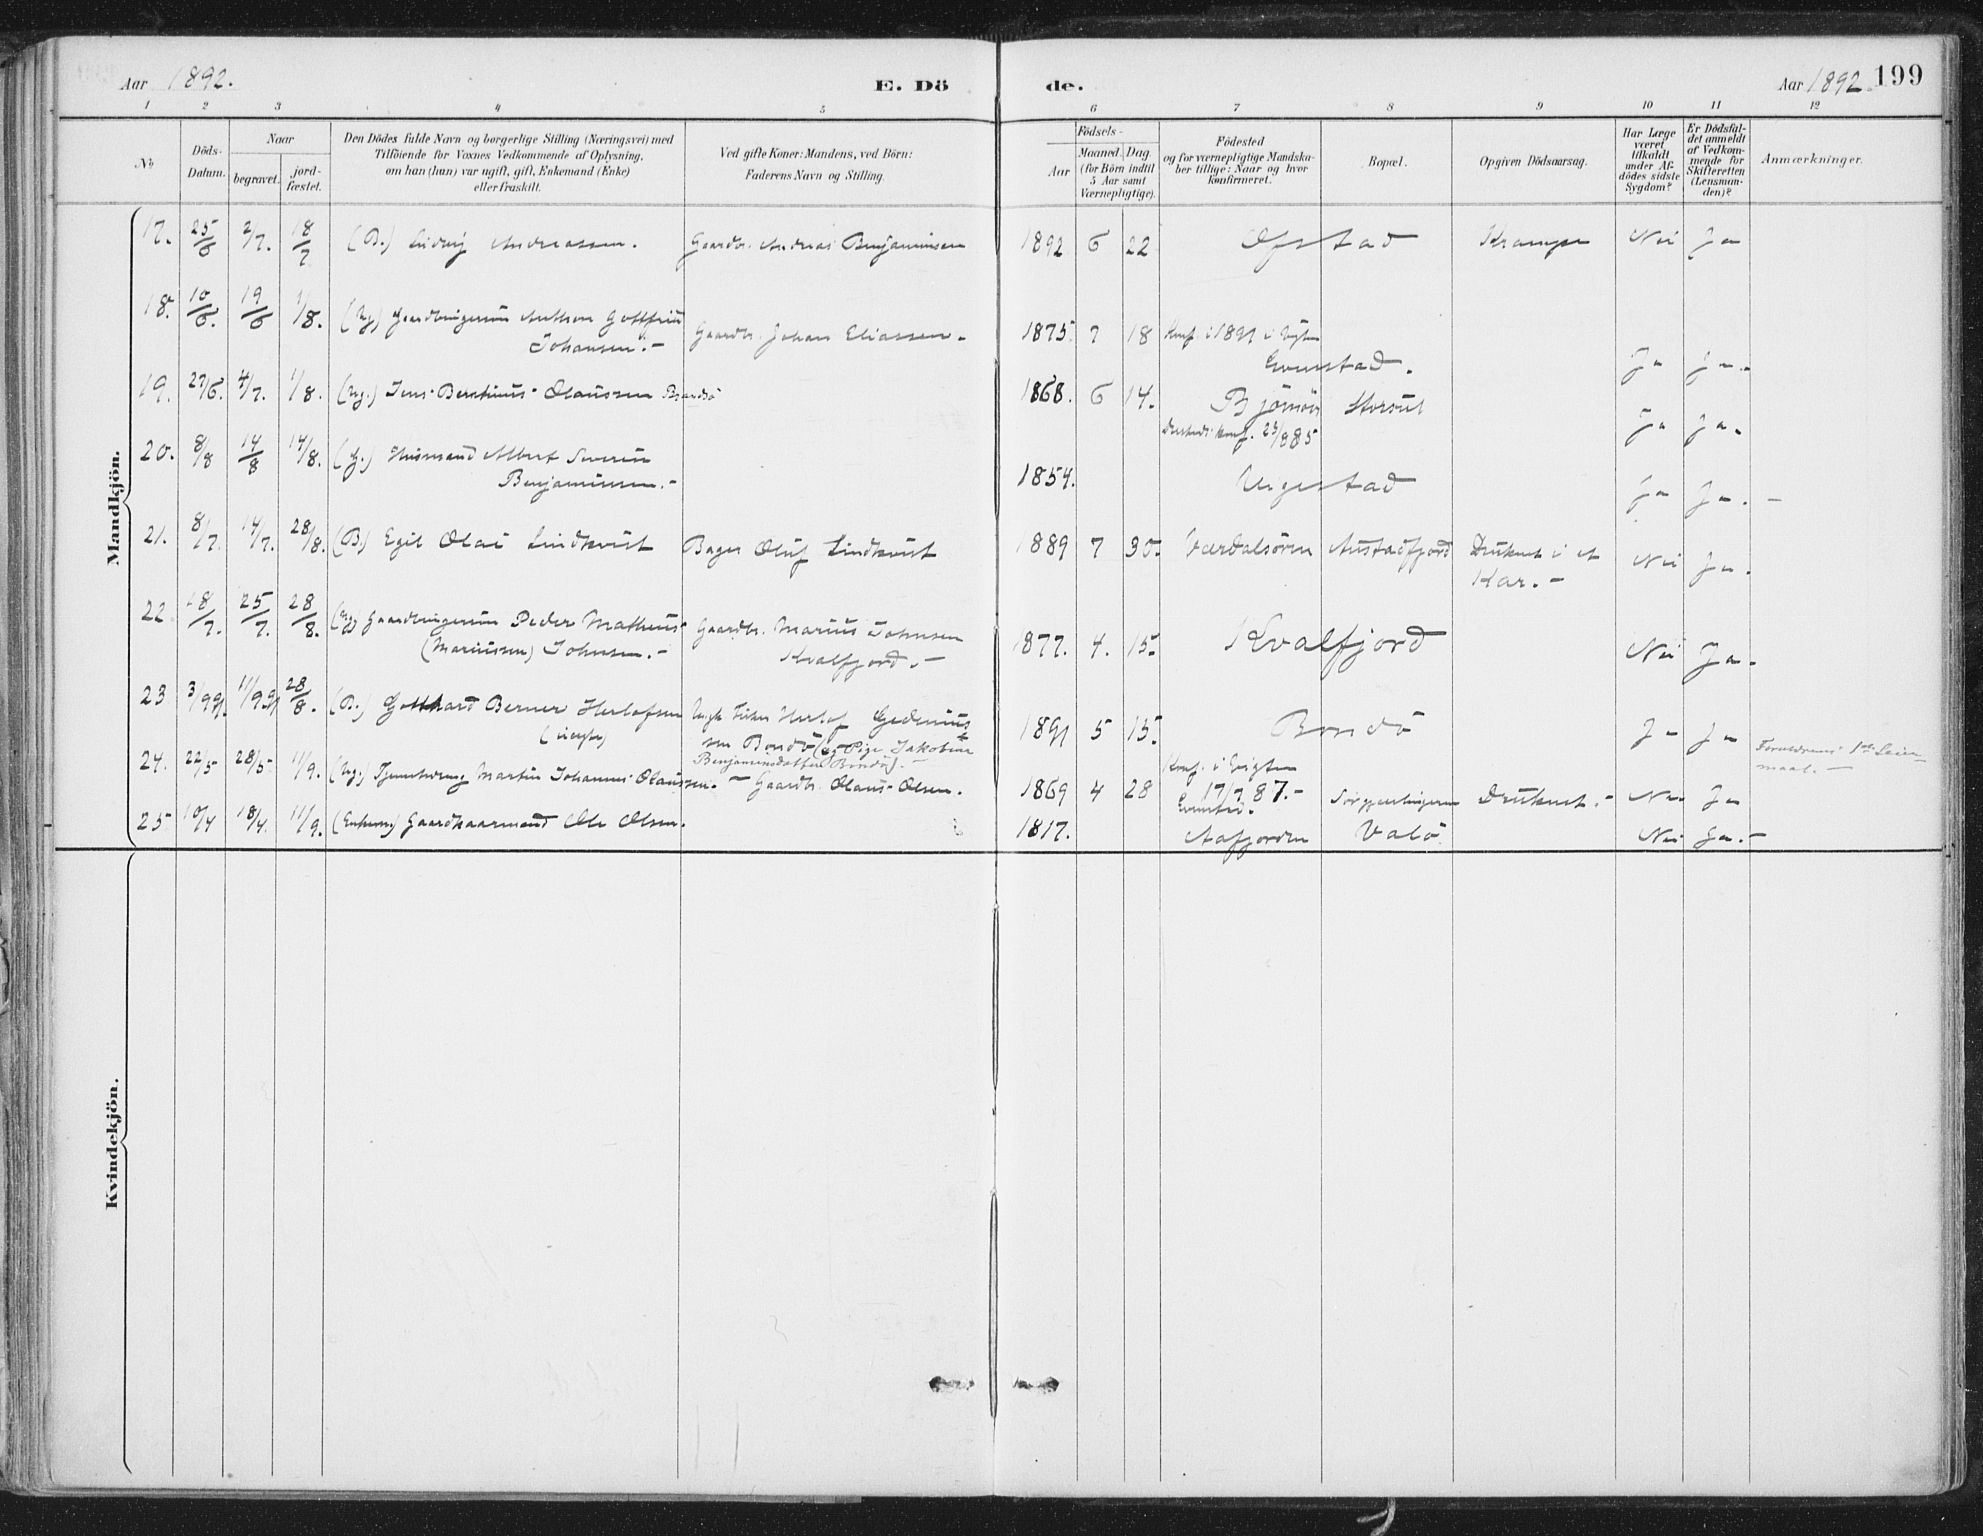 Aar 1892.
E. Dö
de.
Aar 1892.
199
1 2 3 4 5 6 7 8 9 10 11 12
No
Döds-
Datum.
Naar
begravet.
jord-
fæstet.
Den Dödes fulde Navn og borgerlige Stilling (Næringsvei) med
Tilföiende for Voxnes Vedkommende af Oplysning,
om han (hun) var ugift, gift, Enkemand (Enke)
eller fraskilt.
Ved gifte Koner: Mandens, ved Börn:
Faderens Navn og Stilling.
Födsels-
Aar
Maaned. Dag
(for Börn indtil
5 Aar samt
Værnepligtige).
Födested
og for værnepligtige Mandska-
ber tillige: Naar og hvor
konfirmeret.
Bopæl.
Opgiven Dödsaarsag.
Har Læge
været
tilkaldt
under Af-
dödes sidste
Sygdom?
Er Dödsfal-
det anmeldt
af Vedkom-
mende for
Skifteretten
(Lensman-
den)?
Anmærkninger.
Mandkjön.
17. 25/6 2/7. 18/7 (B.) Ludvig Andreassen. Gaardbr. Andreas Benjaminsen 1892 6 22 Ofstad Krampe Nei Ja
18. 10/6. 19/6 1/8. (Ug) Gaardbrugersøn Anthon Gottfried
Johansen.- Gaardbr. Johan Eliassen. 1875 7 18 Konf. i 1891 i Vigten
Evenstad. Ja Ja.
19. 27/6. 4/7. 1/8. (Ug.) Jens Berntinus Olaussen 1868. 6 14. Bjørnör Storsul
Konf. 23/8 85 Ja Ja.
20. 8/8 14/8 14/8. (g.) Husmand Albert Severin
Benjaminsen.- 1854. Ja Ja.-
21. 8/7. 14/7. 28/8. (B.) Egil Olai Lindkvist Bager Oluf Lindkvist 1889 7 30. Værdalsören Austadfjord Druknet i et
Kar.- Nei Ja.
22. 18/7. 25/7. 28/8. (Ug) Gaardbrugersøn Peder Matheus
(Mariussen) Johnsen.- Gaardbr. Marius Johnsen
Kvalfjord.- 1877. 4. 15. Kvalfjord Nei Ja.
23 3/9 91. 11/9 91 28/8. (B.) Gotthard Berner Herlofsen
(uægte) Ungk. Fisker Herlof Gedenius-
sen Bondö (og Pige Jakobine
Benjaminsdatter Bondö).- 1891 5 15. Bondö Ja Ja Forældrenes 1ste Leier-
maal.-
24. 22/5 28/5. 11/9. (Ug.) Tjenestedreng Martin Johannes Olaussen.- Gaardbr. Olaus Olsen. 1869 4 28 Konf. i Vigten
17/7 87.- Druknet.- Nei Ja
25 10/4 18/4. 11/9. (Enkem) Gaardkaarmand Ole Olsen. 1817. Aafjorden Valö. Nei Ja.-
Kvindekjön.